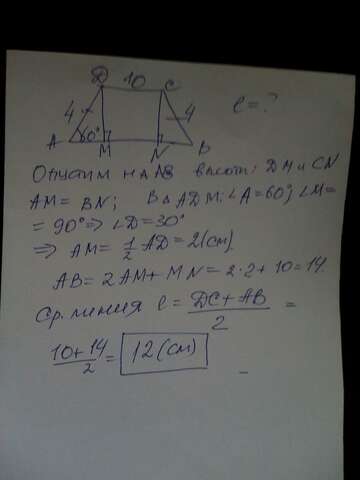 D 10 C
4 4 ℓ = ?
A 60° M N B
Опустим на AB высоты: DM и CN
AM = BN; В △ ADM: ∠A = 60°; ∠M =
= 90° ⇒ ∠D = 30°
⇒ AM = 1/2 AD = 2 (см)
AB = 2 AM + MN = 2·2 + 10 = 14.
Ср. линия ℓ = (DC + AB)/2 =
(10 + 14)/2 = 12 (см)